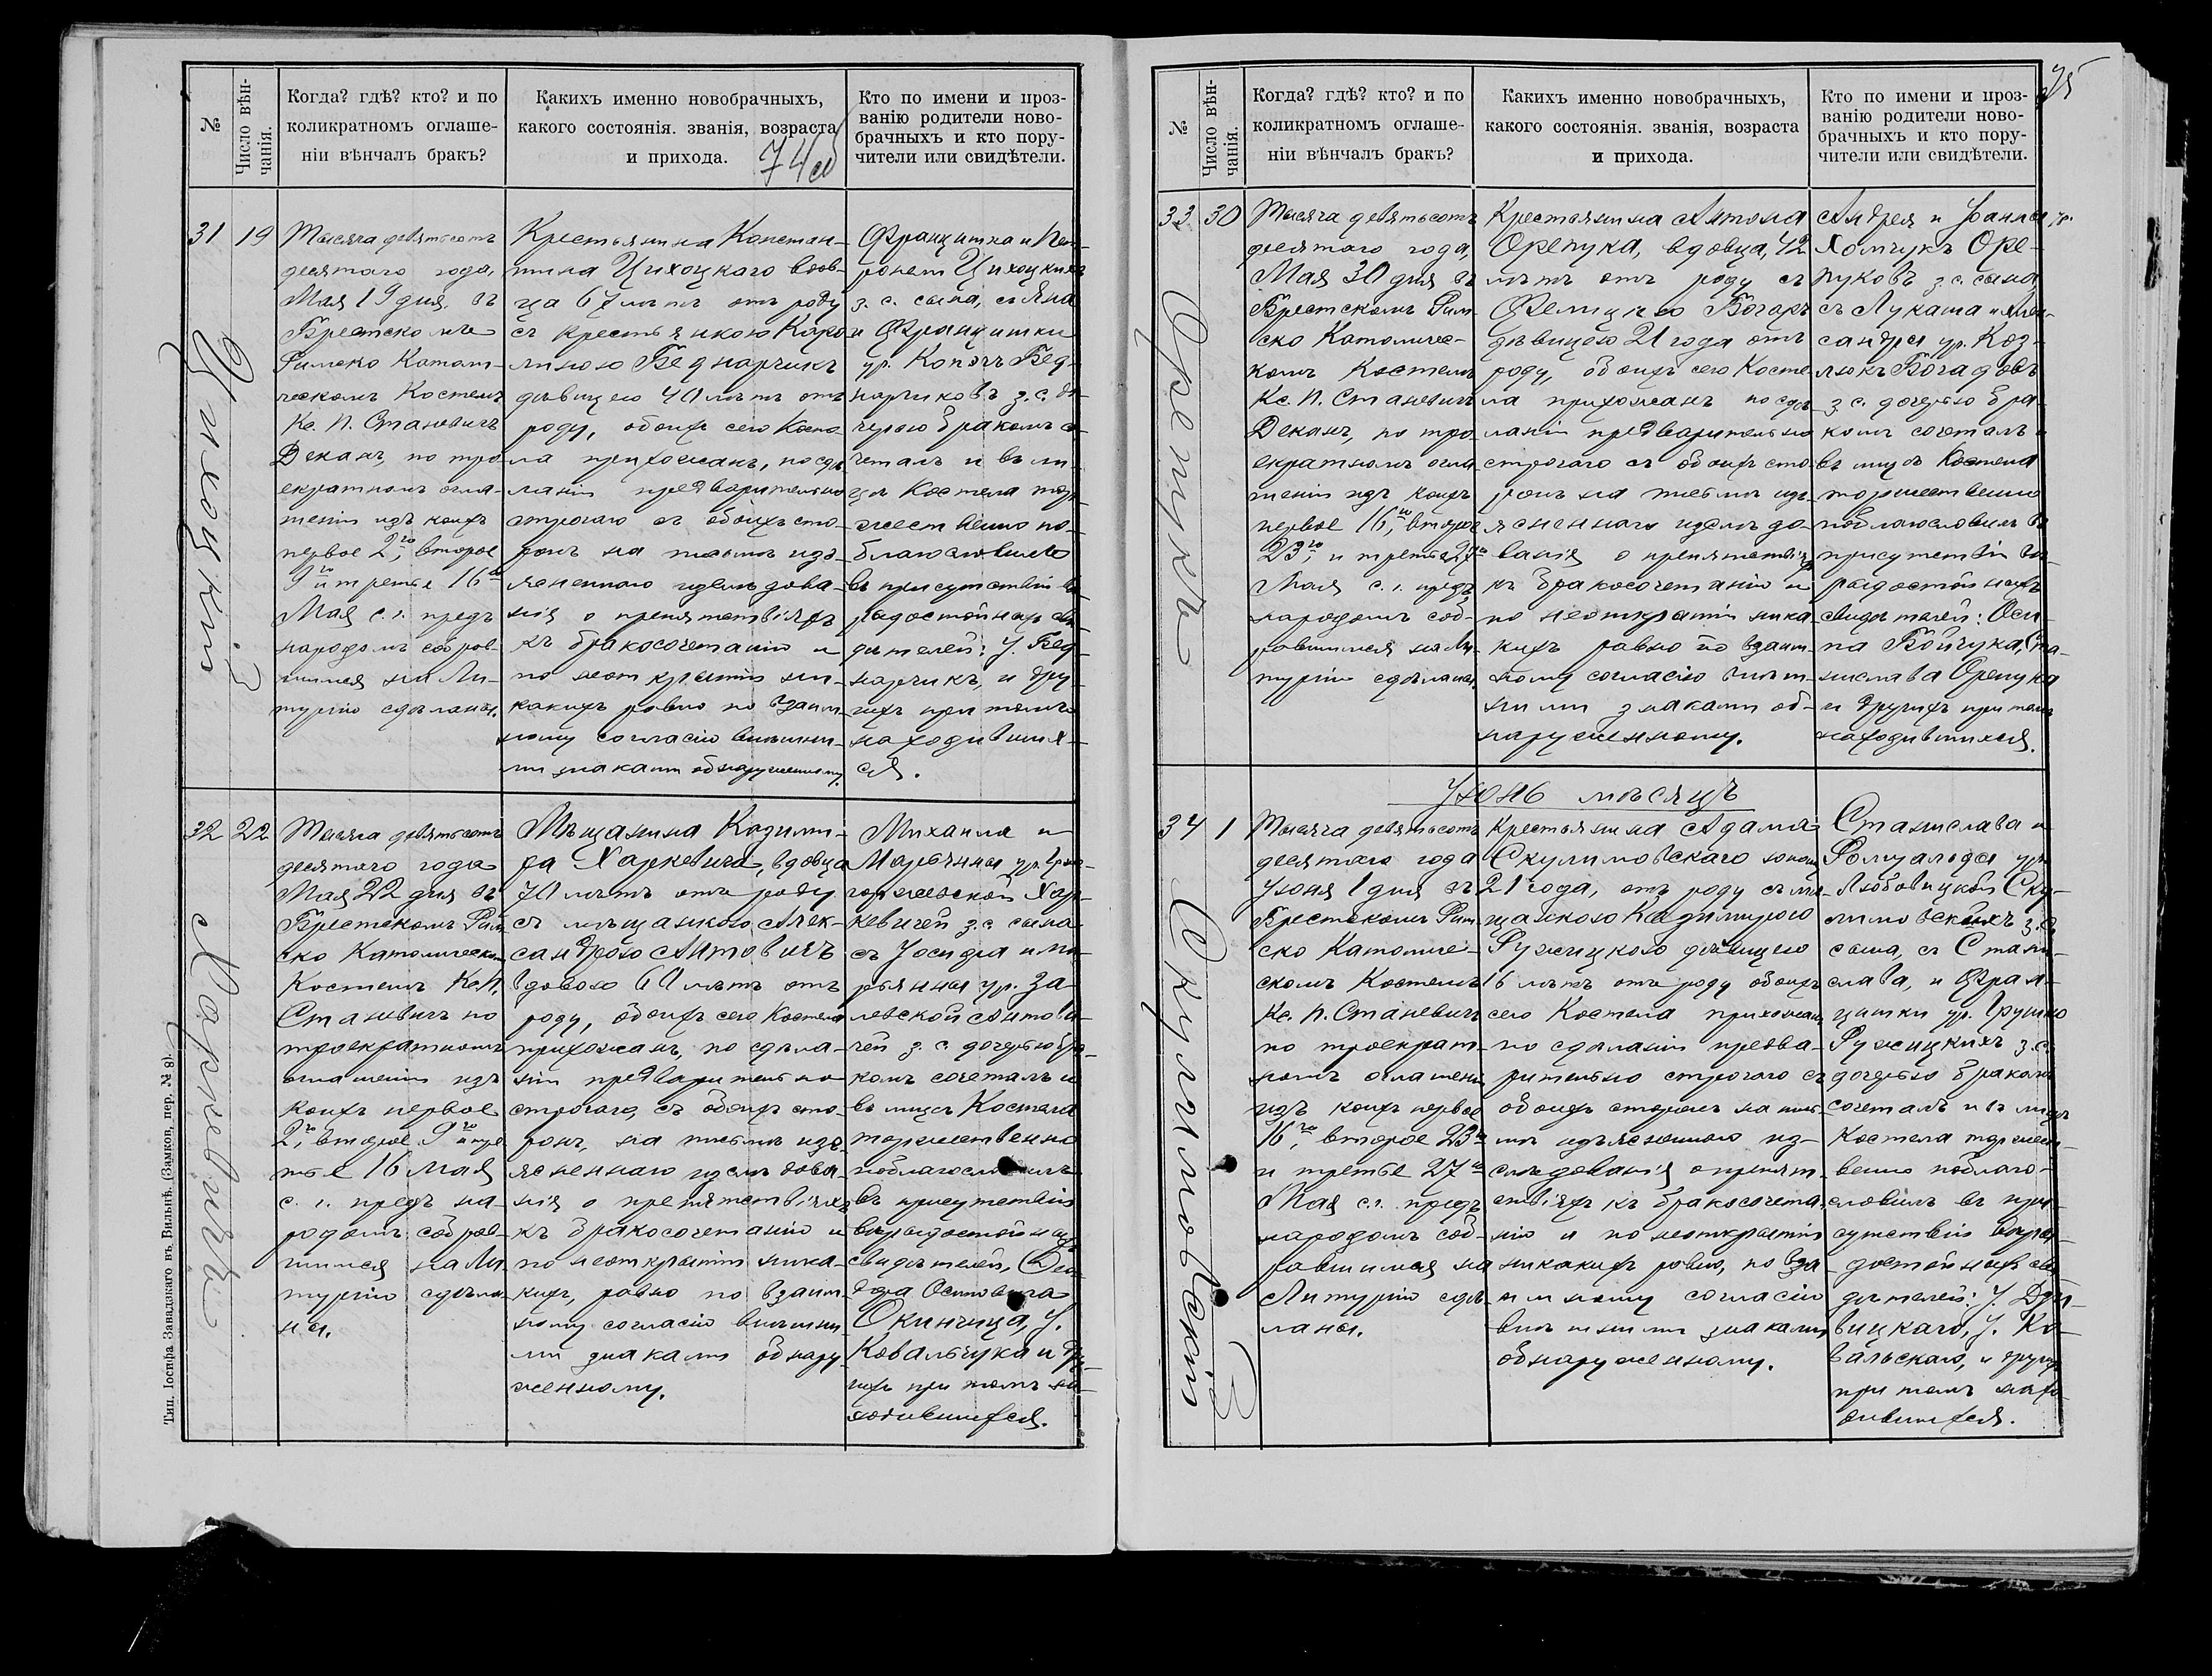 №
Число вѣн-
чанія.
Когда? гдѣ? кто? и по
коликратномъ оглаше-
ніи вѣнчалъ бракъ?
Какихъ именно новобрачныхъ,
какого состоянія. званія, возраста
и прихода.
74 об
Кто по имени и проз-
ванію родители ново-
брачныхъ и кто пору-
чители или свидѣтели.
31
19
Цихоцкій
Тысяча девятьсотъ
десятаго года,
Мая 19 дня въ
Брестскомъ
Римско Катали-
ческомъ Костелѣ
Кс. П. Станевичъ
Деканъ, по тро
екратномъ огла
шеніи изъ коихъ
первое 2го, второе
9го и третье 16го
Мая с. г. предъ
народомъ собрав-
шимся на Ли-
тургію сдѣланы.
Крестьянина Констан-
тина Цихоцкаго вдов-
ца 67 лѣтъ отъ роду
съ крестьянкою Каро
линою Беднарчикъ
дѣвицею 40 лѣтъ отъ
роду, обоихъ сего Косте
ла прихожанъ, по сдѣ
ланіи предварительно
строгаго съ обоихъ сто-
ронъ на письмѣ изъ-
ясненнаго изслѣдова-
нія о препятствіяхъ
къ бракосочетанію и
по неоткрытіи ни-
какихъ равно по взаим-
ному согласію внѣшни-
ми знаками обнаруженному.
Францишка и Пет
ронели Цихоцкихъ
з. с. сына, съ Яна
и Францишки
ур. Копочъ Бед-
нарчиковъ з. с. до-
черью бракомъ со-
четалъ и въ ли-
цѣ Костела тор-
жественно по-
благословилъ
въ присутствіи вѣ-
радостойныхъ сви
дѣтелей: І. Бед-
нарчикъ, и дру-
гихъ при томъ
находивших-
ся.
32
22
Харкевичъ
Тысяча девятьсотъ
десятаго года
Мая 22 дня въ
Брестскомъ Рим
ско Католическомъ
Костелѣ Кс. П.
Станевичъ по
троекратномъ
оглашеніи изъ
коихъ первое
2го, второе 9го и тре
тье 16 Мая
с. г. предъ на-
родомъ собрав-
шимся на Ли
тургію сдѣла
ны.
Мѣщанина Казими-
ра Харкевича, вдовца
70 лѣтъ отъ роду
съ мѣщанкою Алек-
сандрою Антовичъ
вдовою 60 лѣтъ отъ
роду, обоихъ сего Костела
прихожанъ, по сдѣла-
ніи предварительно
строгаго, съ обоихъ сто-
ронъ, на письмѣ изъ-
ясненнаго изслѣдова
нія о препятствіяхъ
къ бракосочетанію и
по неоткрытіи ника-
кихъ, равно по взаим-
ному согласію внѣшни
ми знаками обнару-
женному.
Михаила и
Маріанны
Хар-
кевичей з. с. сына
съ Іосифа и Ма
ріанны ур. За
левской Антови
чей з. с. дочерью бра-
комъ сочеталъ и
въ лицѣ Костела
торжественно
поблагословилъ
въ присутствіи
вѣрадостойныхъ
свидѣтелей,
Осиповича
Окинчица, І.
Ковальчука и дру
гихъ при томъ на-
ходившихся.
Тип. Іосифа Завадзкаго въ Вильнѣ. (Замков. пер. № 8).
75
№
Число вѣн-
чанія.
Когда? гдѣ? кто? и по
коликратномъ оглаше-
ніи вѣнчалъ бракъ?
Какихъ именно новобрачныхъ,
какого состоянія. званія, возраста
и прихода.
Кто по имени и проз-
ванію родители ново-
брачныхъ и кто пору-
чители или свидѣтели.
33
30
Орепукъ
Тысяча девятьсотъ
десятаго года,
Мая 30 дня въ
Брестскомъ Рим
ско Католичес-
комъ Костелѣ
Кс. П. Станевичъ
Деканъ, по тро
екратномъ огла
шеніи изъ коихъ
первое 16го, второе
23го, и третье 27го
Мая с. г. предъ
народомъ соб-
равшимся на Ли-
тургію сдѣланы.
Крестьянина Антона
Орепука, вдовца, 42
лѣтъ отъ роду съ
Фелицією Богачъ
дѣвицею 21 года отъ
роду, обоихъ сего Косте-
ла прихожанъ по сдѣ
ланіи предварительно
строгаго съ обоихъ сто-
ронъ на письмѣ изъ-
ясненнаго изслѣдо-
ванія о препятствіяхъ
къ бракосочетанію и
по неоткрытіи ника
кихъ равно по взаим-
ному согласію внѣш-
ними знаками об-
наруженному.
Андрея и Іоанны ур.
Хомчукъ Оре-
пуковъ з. с. сына,
съ Лукаша и Алек-
сандры ур. Коз-
люкъ
з. с. дочерью бра-
комъ сочеталъ и
въ лицѣ Костела
торжественно
поблагословилъ въ
присутствіи вѣ-
радостойныхъ
свидѣтелей: Оси-
па Бойчука, Ста-
нислава Орепука
и другихъ при томъ
находившихся.
Іюнь мѣсяцъ
34
1
Скулимовскій
Тысяча девятьсотъ
десятаго года
Іюня 1 дня въ
Брестскомъ Рим
ско Католиче-
скомъ Костелѣ
Кс. П. Станевичъ
по троекрат-
номъ оглашеніи
изъ коихъ первое
16го, второе 23го
и третье 27го
Мая с. г. предъ
народомъ соб-
равшимся на
Литургію сдѣ-
ланы.
Крестьянина Адама
Скулимовскаго юношу
21 года, отъ роду съ мѣ-
щанкою Казимирою
Ружицкою дѣвицею
16 лѣтъ отъ роду обоихъ
сего Костела прихожанъ
по сдѣланіи предва-
рительно строгаго съ
обоихъ сторонъ на пись-
мѣ изъясненнаго из-
слѣдованія о препят-
ствіяхъ къ бракосочета-
нію и по неоткрытіи
никакихъ равно, по вза
имному согласію
внѣшними знаками
обнаруженному.
Станислава и
Ромуальды ур.
Любовицкой Ску-
лимовскихъ з. с.
сына, съ Стани-
слава, и Фран-
цишки ур. Грушко
Ружицкихъ з. с.
дочерью бракомъ
сочеталъ и въ лицѣ
Костела торжест-
венно поблаго-
словилъ въ при-
сутствіи вѣра-
достойныхъ сви
дѣтелей: І.
вицкаго, І. Ко-
вальскаго, и другихъ
при томъ нахо-
дившихся.